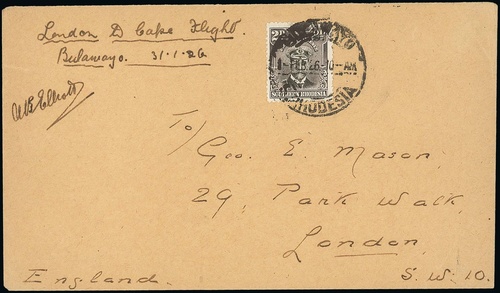 London D Cape Flight.
Bulawayo. 31.1.26
2D
SOUTHERN RHODESIA
1 - FEB. 26 - 10 - AM
RHODESIA
To/
Geo. E. Mason.
29, Park Walk,
London.
England.
S. W. 10.